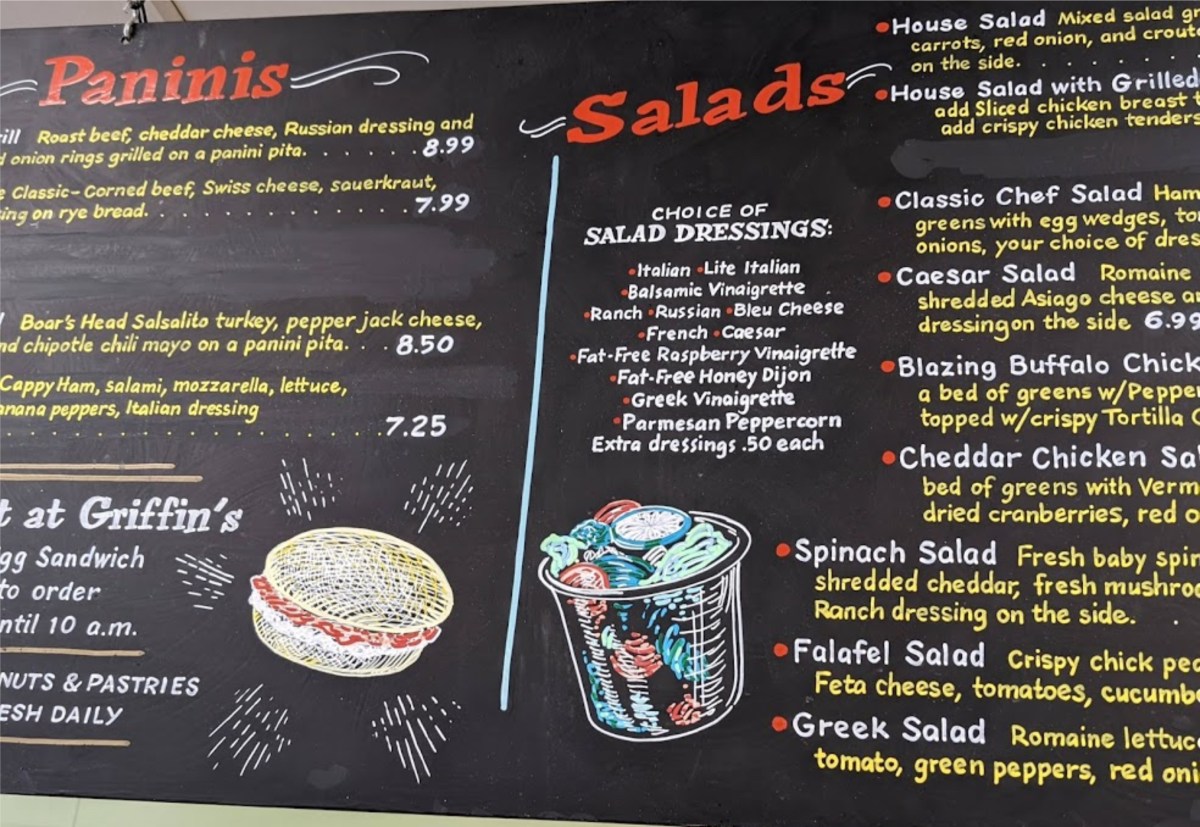 Paninis
ill Roast beef, cheddar cheese, Russian dressing and
d onion rings grilled on a panini pita. . . . . . . 8.99
e Classic-Corned beef, Swiss cheese, sauerkraut,
ing on rye bread. . . . . . . . . . . . . . . 7.99
Boar's Head Salsalito turkey, pepper jack cheese,
nd chipotle chili mayo on a panini pita. . . 8.50
Cappy Ham, salami, mozzarella, lettuce,
anana peppers, Italian dressing
. . . . . . . . . . . . . . . . . . . 7.25
t at Griffin's
gg Sandwich
to order
ntil 10 a.m.
NUTS & PASTRIES
ESH DAILY
Salads
CHOICE OF
SALAD DRESSINGS:
•Italian •Lite Italian
•Balsamic Vinaigrette
•Ranch •Russian •Bleu Cheese
•French •Caesar
•Fat-Free Raspberry Vinaigrette
•Fat-Free Honey Dijon
•Greek Vinaigrette
•Parmesan Peppercorn
Extra dressings .50 each
•House Salad Mixed salad gr
carrots, red onion, and crout
on the side. . . . . . . .
•House Salad with Grilled
add Sliced chicken breast t
add crispy chicken tenders
•Classic Chef Salad Ham
greens with egg wedges, to
onions, your choice of dres
•Caesar Salad Romaine
shredded Asiago cheese a
dressing on the side 6.99
•Blazing Buffalo Chick
a bed of greens w/Peppe
topped w/crispy Tortilla C
•Cheddar Chicken Sal
bed of greens with Verm
dried cranberries, red o
•Spinach Salad Fresh baby spin
shredded cheddar, fresh mushroo
Ranch dressing on the side. .
•Falafel Salad Crispy chick pea
Feta cheese, tomatoes, cucumb
•Greek Salad Romaine lettuc
tomato, green peppers, red oni